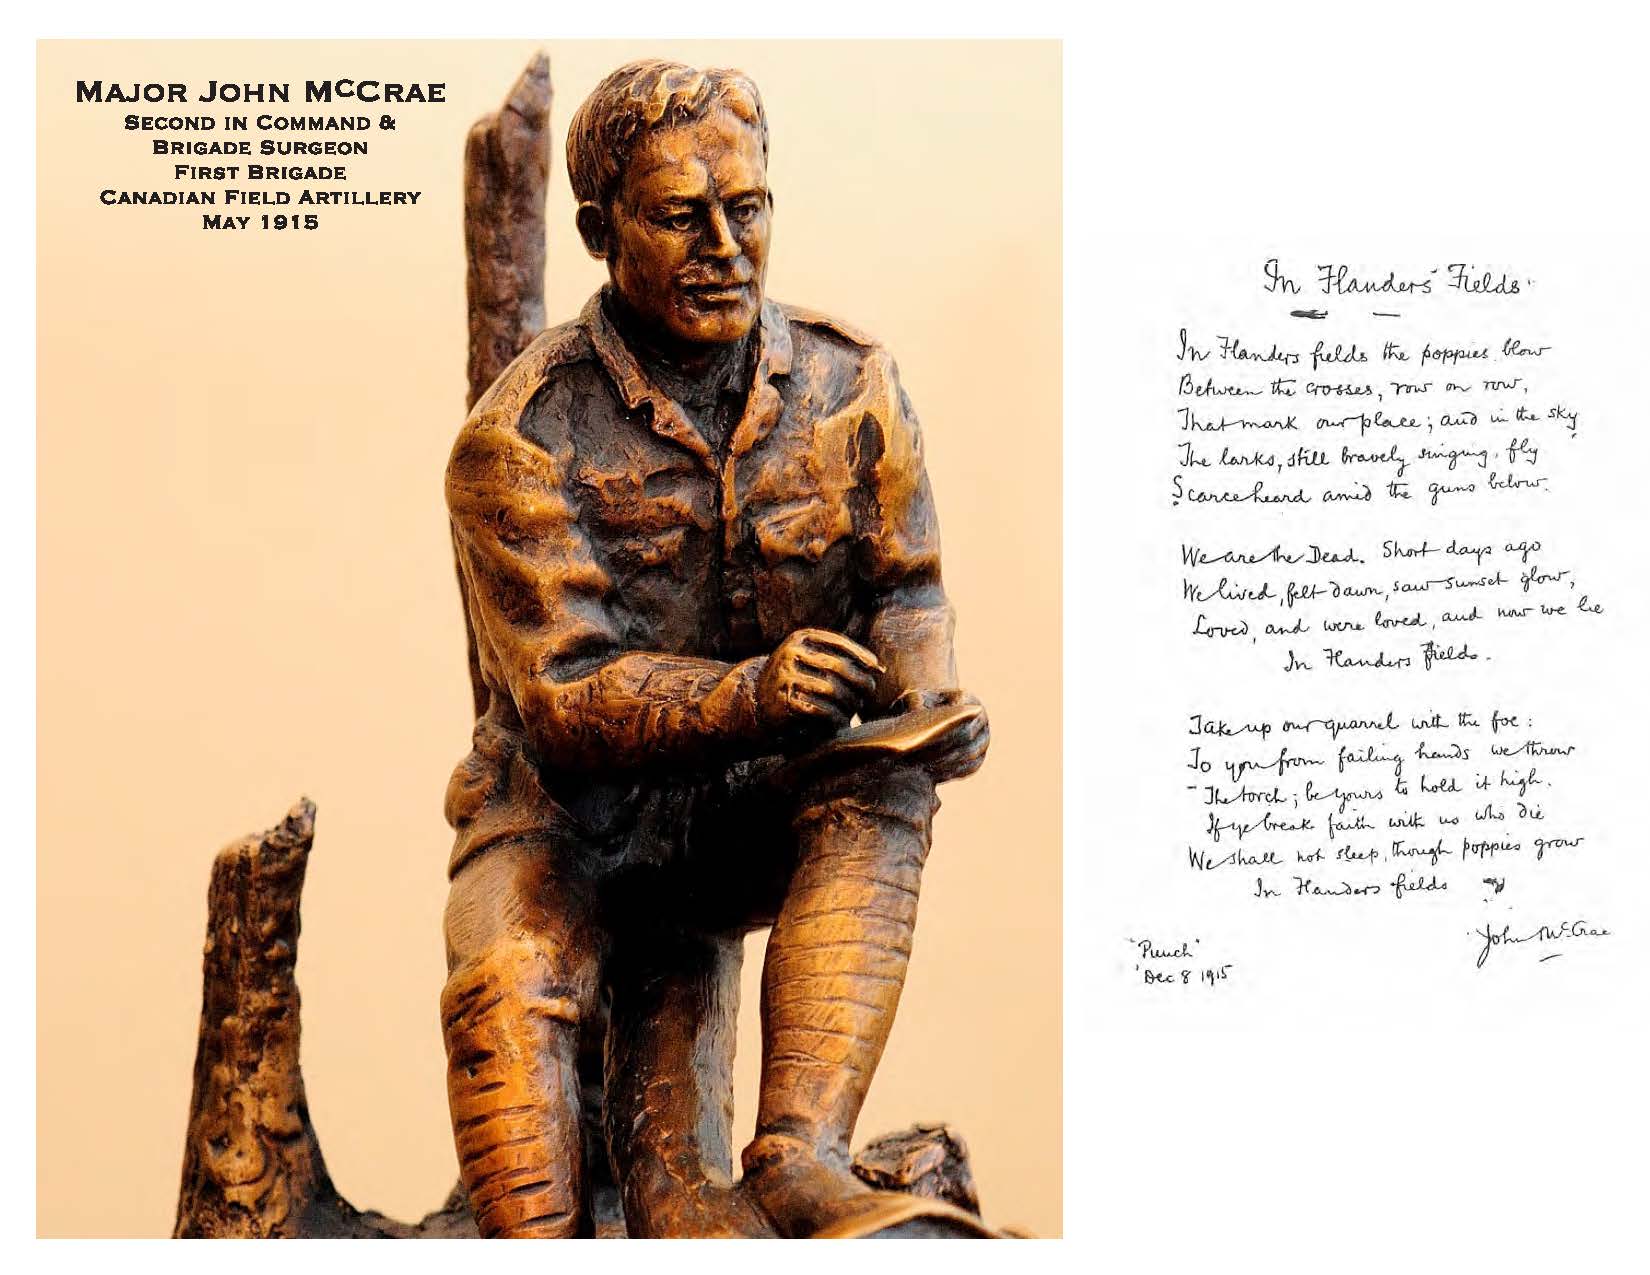 MAJOR JOHN McCRAE
SECOND IN COMMAND &
BRIGADE SURGEON
FIRST BRIGADE
CANADIAN FIELD ARTILLERY
MAY 1915
In Flanders' Fields.
In Flanders fields the poppies blow
Between the crosses, row on row,
That mark our place; and in the sky
The larks, still bravely singing, fly
Scarce heard amid the guns below.
We are the Dead. Short days ago
We lived, felt dawn, saw sunset glow,
Loved, and were loved, and now we lie
In Flanders fields.
Take up our quarrel with the foe:
To you from failing hands we throw
The torch; be yours to hold it high.
If ye break faith with us who die
We shall not sleep, though poppies grow
In Flanders fields
John McCrae
"Punch"
Dec 8 1915